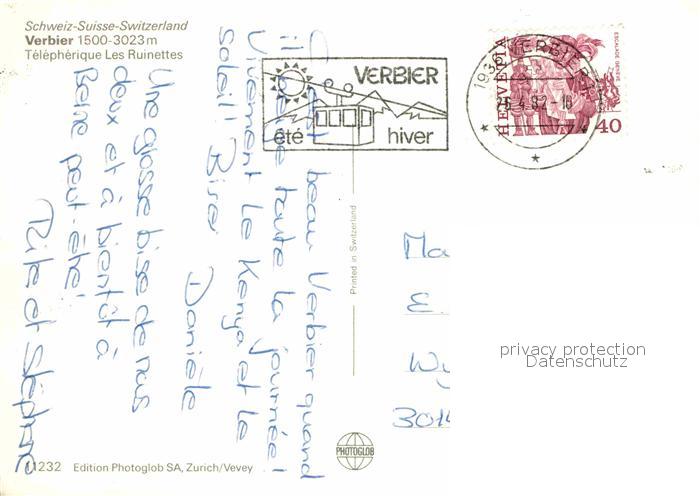 Schweiz-Suisse-Switzerland
Verbier 1500-3023 m
Téléphérique Les Ruinettes
VERBIER
été hiver
1936 VERBIER
26.4.82-18
HELVETIA
ESCALADE GENÈVE
40
C'est beau Verbier quand
il neige toute la journée!
Vivement le Kenya et le
soleil! Bises
Danièle
Une grosse bise de nous
deux et à bientôt à
Berne peut-être!
Rita et Stéphane
Printed in Switzerland
Ma
E.
Wy
3014
privacy protection
Datenschutz
PHOTOGLOB
1232 Edition Photoglob SA, Zurich/Vevey